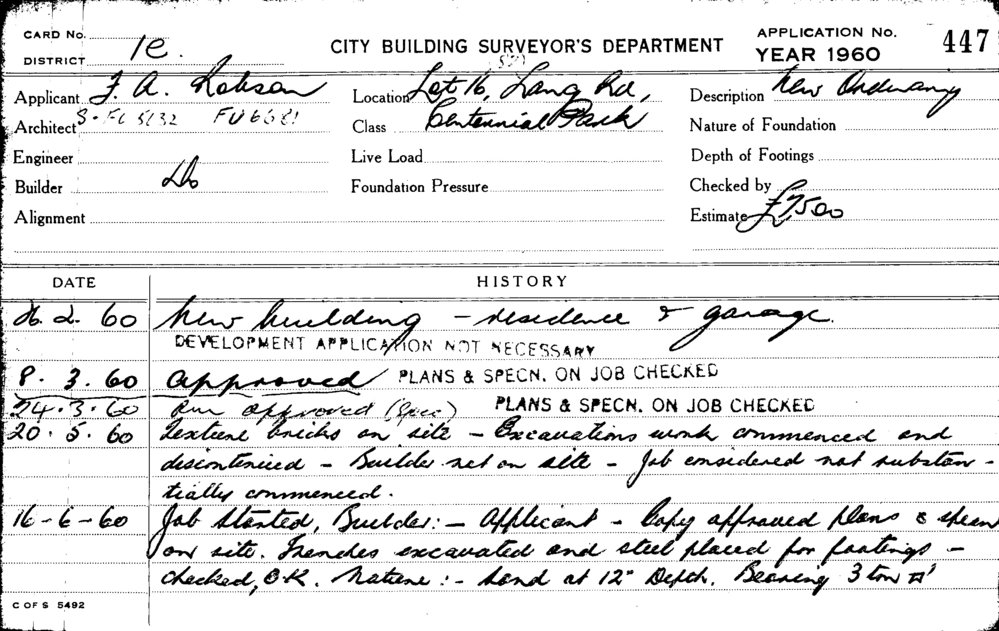 CARD No. CITY BUILDING SURVEYOR'S DEPARTMENT APPLICATION No. 447
DISTRICT 1e. YEAR 1960
Applicant F. A. Robson Location Lot 16, Lang Rd, Description New Ordinary
Architect FU 6681 Class Centennial Park Nature of Foundation
Engineer Live Load Depth of Footings
Builder Do Foundation Pressure Checked by
Alignment Estimate £7500
DATE HISTORY
26. 2. 60 New building – residence & garage.
DEVELOPMENT APPLICATION NOT NECESSARY
8. 3. 60 Approved PLANS & SPECN. ON JOB CHECKED
24. 3. 60 approved (Spec) PLANS & SPECN. ON JOB CHECKED
20. 5. 60 Texture bricks on site – Excavations work commenced and
discontinued – Builder not on site – Job considered not substan-
tially commenced.
16-6-60 Job Started, Builder:– Applicant – Copy approved plans & specn
on site. Trenches excavated and steel placed for footings –
checked, O.K. Nature:– Sand at 12" Depth. Bearing 3 ton □'
C OF S 5492